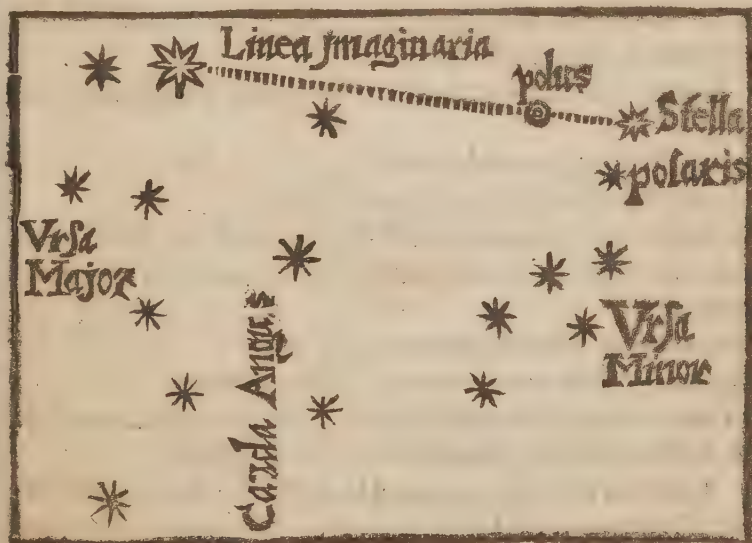 Linea Jmaginaria
polus
Stella
polaris
Vrſa
Major
Cauda Anguis
Vrſa
Minor